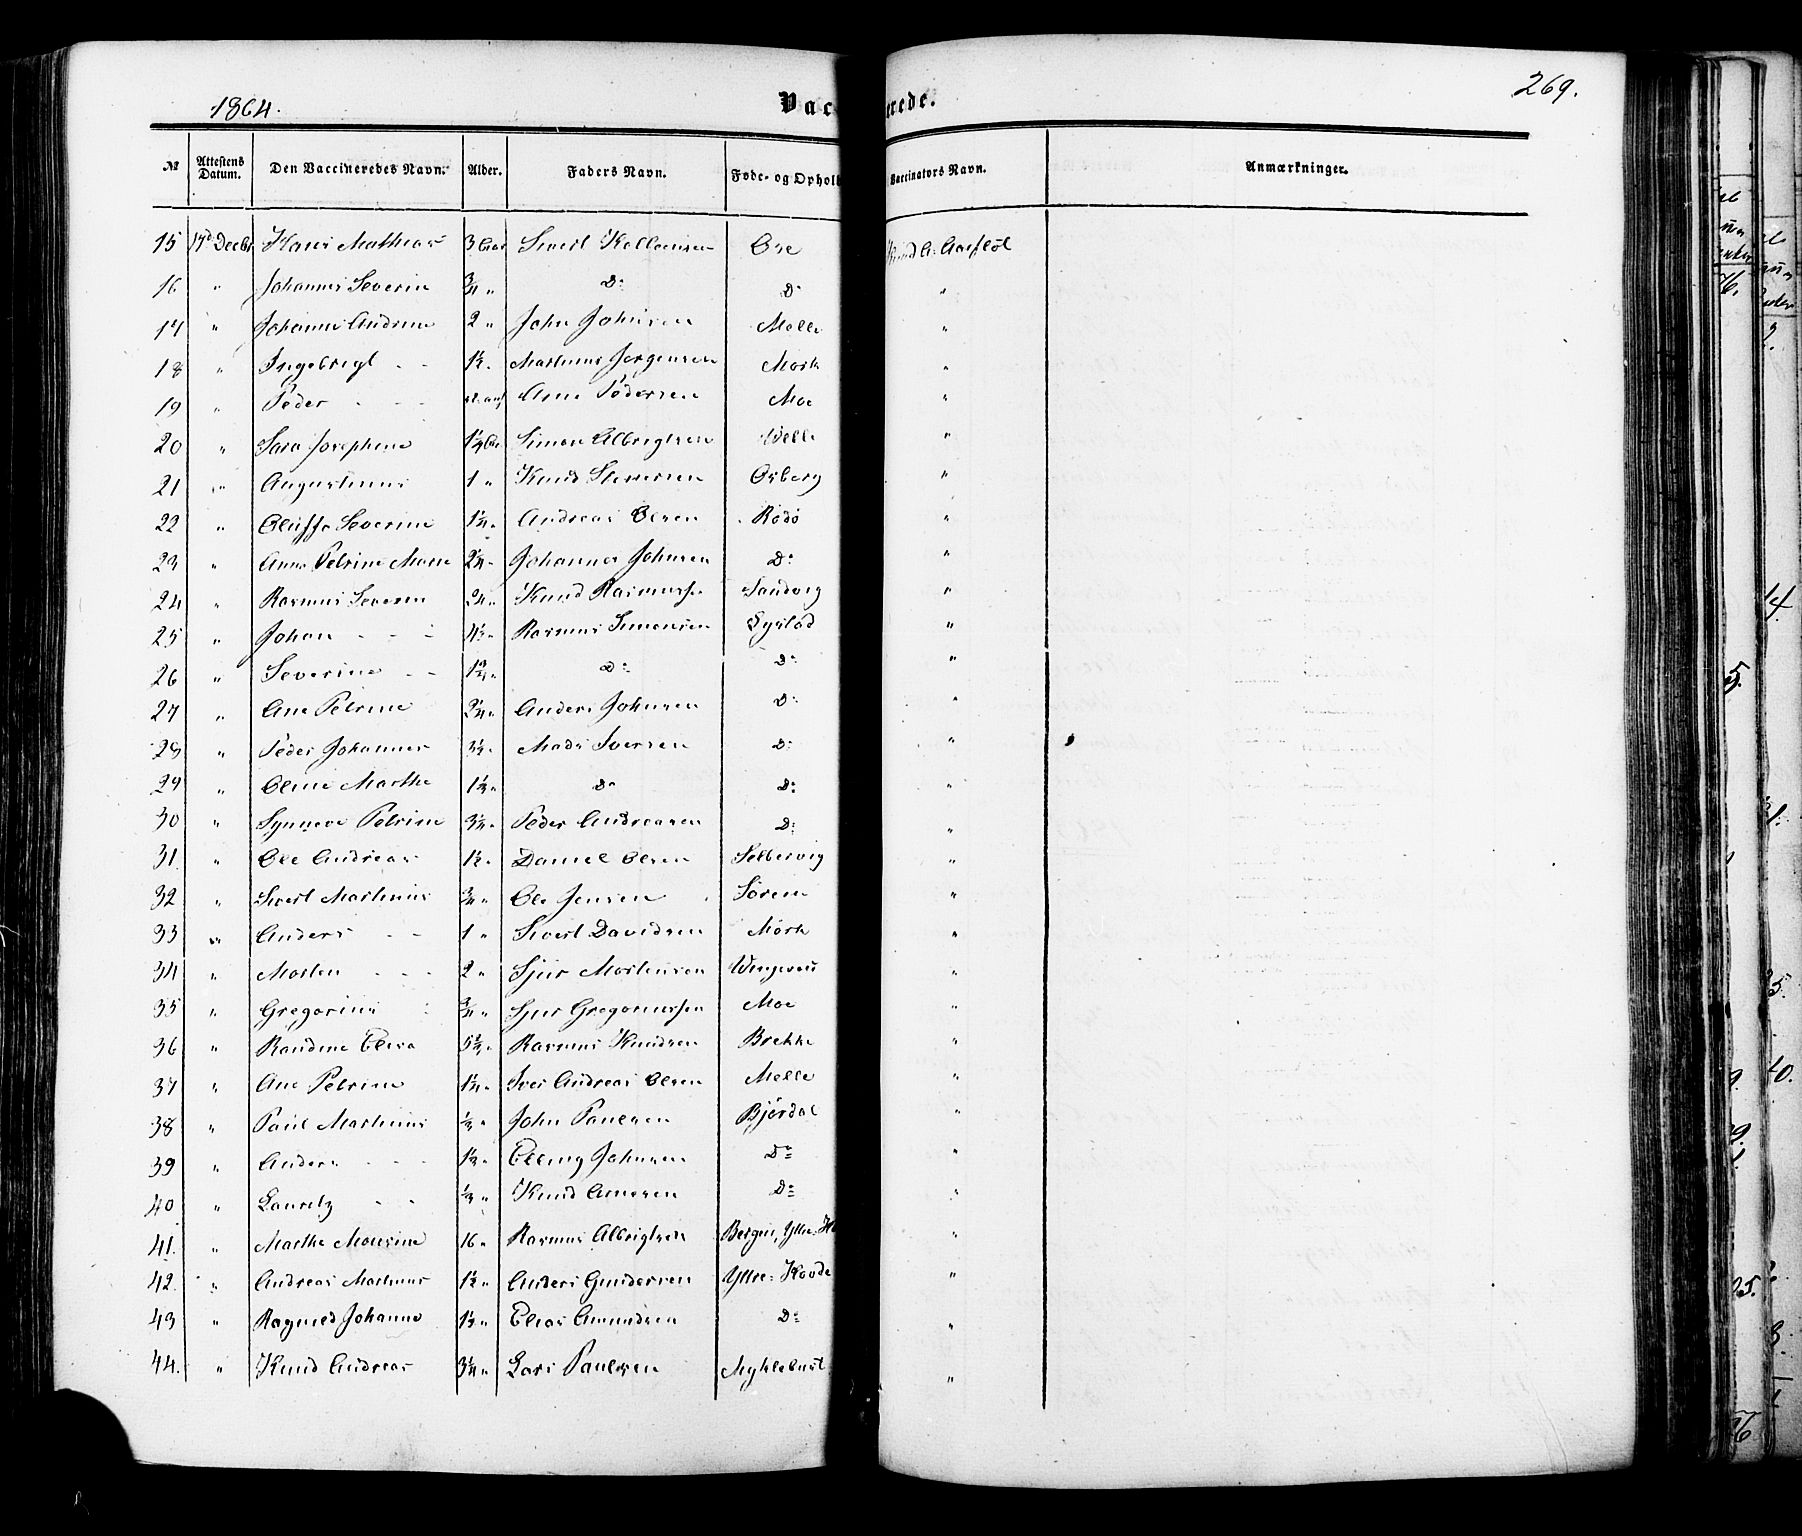 1864.
Vac erede.
269.
№ Attestens Datum. Den Vaccineredes Navn. Alder. Faders Navn. Føde- og Ophol Vaccinators Navn. Anmærkninger.
15 17d Decbr Hans Mathias 3 Sivert Øre
16 " Johannes Severin 3/4 " D: D: "
17 " Johanne Andrine 2 " John Johnsen Melle "
18 " Ingebrigt - - 1½ " Martinus Jørgensen Mork "
19 " Peder - - - Arne Pedersen Moe "
20 " Sara Josephine Simon Albrigtsen Welle "
21 " Augustinus 1 " Knud Osberg "
22 " Oluffe Severine 1¼ " Andreas Olsen Rødø "
23 " Anne Petrine 2¼ " Johannes Johnsen D: "
24 " Rasmus Severin Knud Rasmussen Sandvig "
25 " Johan - - - 4½ " Rasmus Simonsen "
26 " Severine - - 1¾ " D: D: "
27 " Ane Petrine 2¼ " Anders Johnsen D: "
28 " Peder Johannes 3½ " Mads Iversen D: "
29 " Oline Marthe 1½ " D: D: "
30 " Synneve Petrine 3¼ " Peder Andreasen D: "
31. " Ole Andreas 1½ " Daniel Olsen "
32 " Sivert Martinus 3/4 " Ole Jensen "
33 " Anders - - 1 " Sivert Davidsen Mørk "
34 " Morten - - - 2 " Sjur Mortensen "
35 " Gregorius 3/4 " Sjur Gregoriussen Moe "
36 " Randine Elisa 5½ " Rasmus Knudsen Brekke "
37 " Ane Petrine 1¼ " Iver Andreas Olsen Melle "
38 " Paul Martinus ½ " John Paulsen Bjørdal "
39 " Anders - - - 1½ " Elling Johnsen D: "
40 " Lauritz - - ½ " Knud D: "
41. " Marthe 16 " Rasmus Albrigtsen Bergen, Ytre- "
42. " Andreas Martinus 1½ " Anders Gundersen Ytre-Hovde "
43 " Ragnild Johanne 1½ " Elias Amundsen D: "
44. " Knud Andreas 3¼ " Lars Paulsen Myklebust "